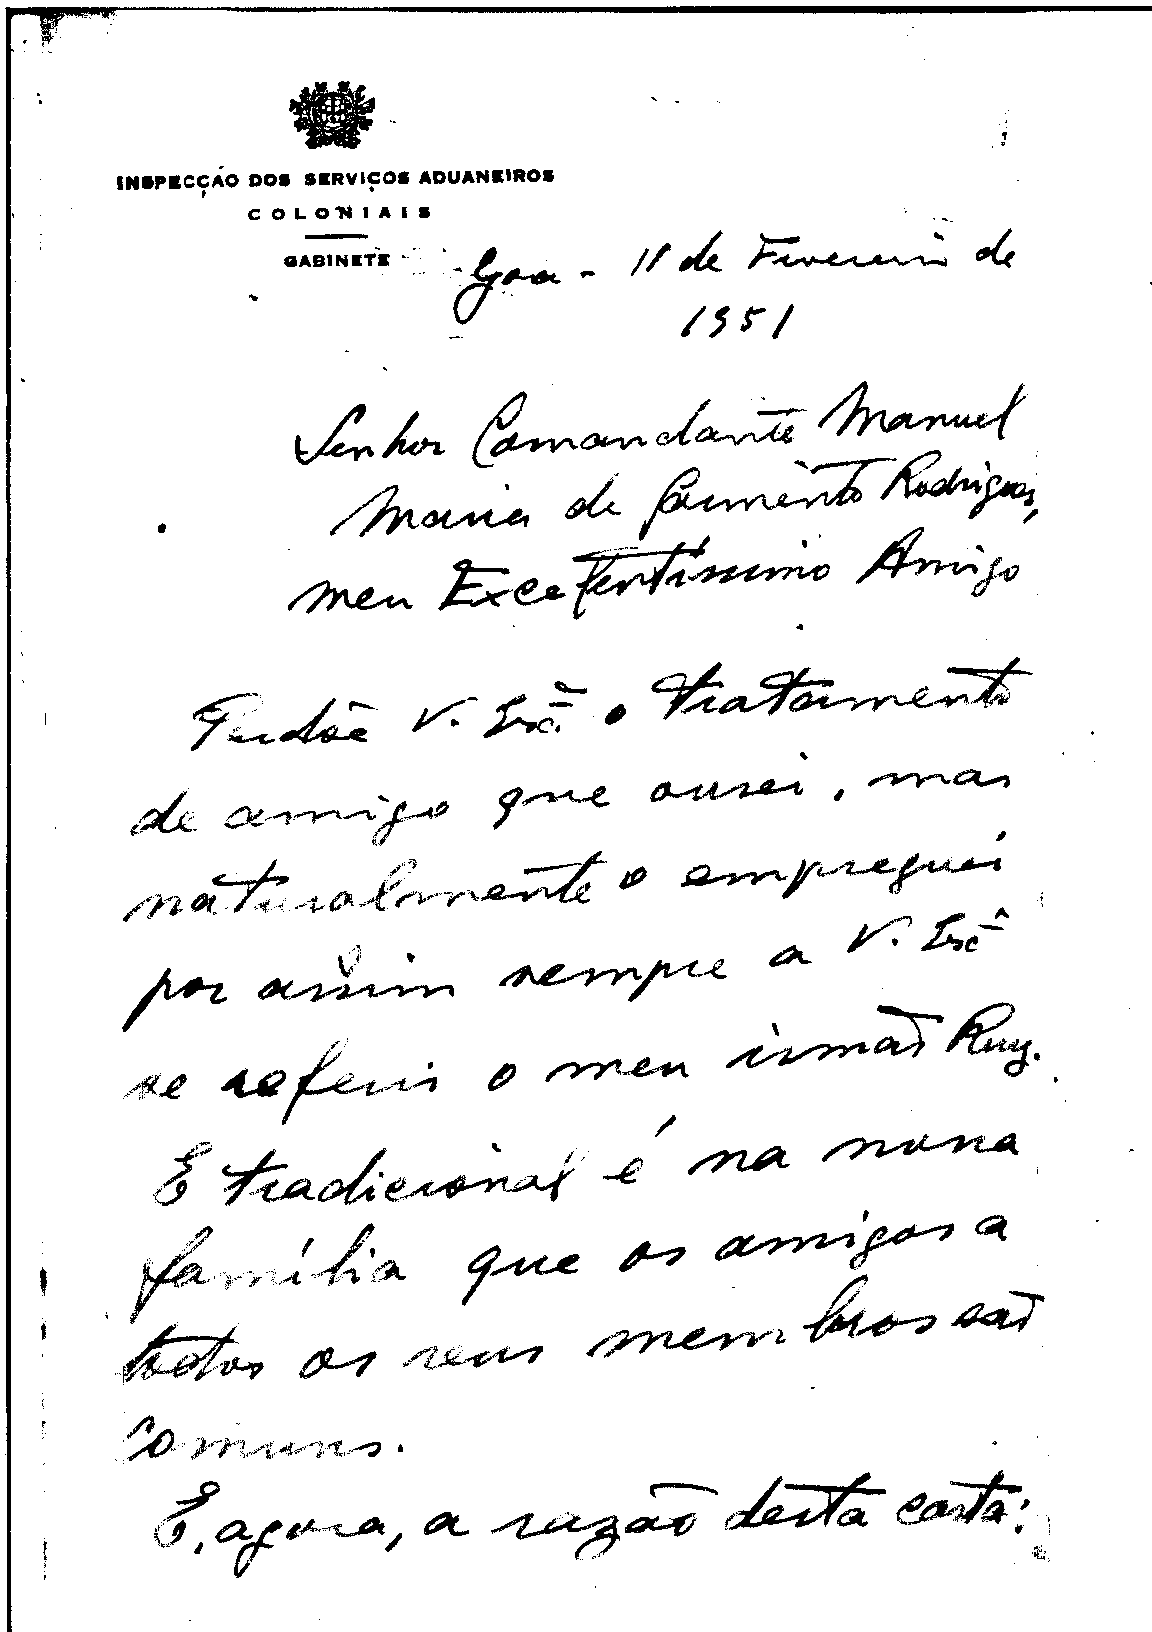 INSPECÇÃO DOS SERVIÇOS ADUANEIROS
COLONIAIS
GABINETE
Goa - 11 de Fevereiro de
1951
Senhor Comandante Manuel
Maria de Sarmento Rodrigues,
meu Excelentíssimo Amigo
Perdôe V. Exª o tratamento
de amigo que ousei, mas
naturalmente o empreguei
por assim sempre a V. Exª
se referir o meu irmão Ruy.
E tradicional é na nossa
família que os amigos a
todos os seus membros são
comuns.
E, agora, a razão desta carta: